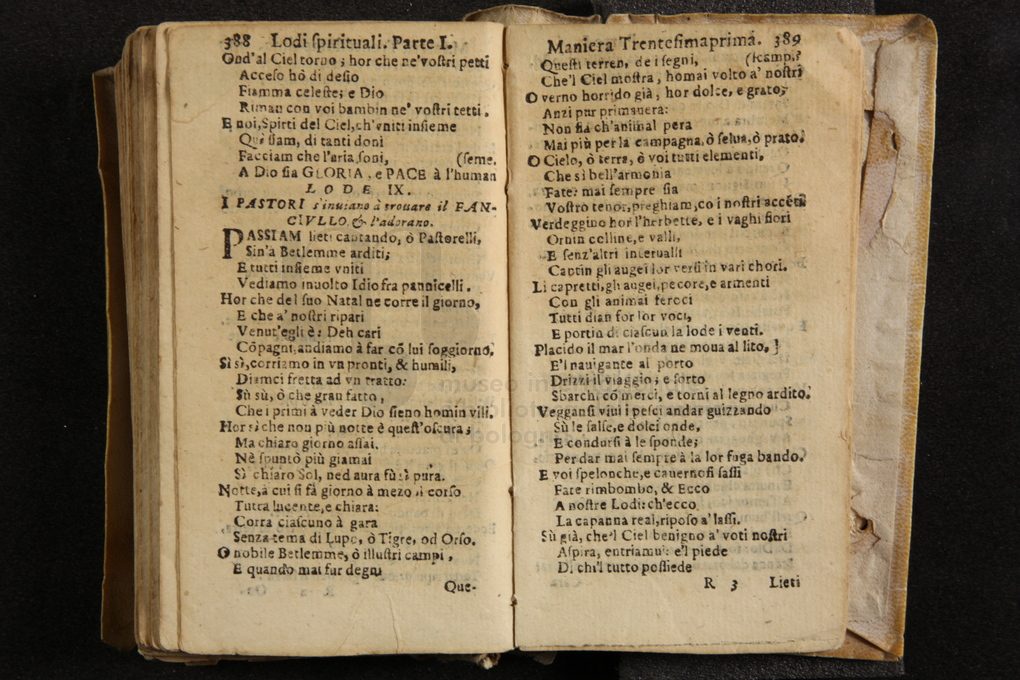 388 Lodi ſpirituali. Parte I.
Ond'al Ciel torno; hor che ne'voſtri petti
Acceſo hò di deſio
Fiamma celeſte; e Dio
Riman con voi bambin ne' voſtri tetti.
E noi, Spirti del Ciel, ch'vniti inſieme
Quì ſiam, di tanti doni
Facciam che l'aria ſoni, (ſeme.
A Dio ſia GLORIA, e PACE à l'human
LODE IX.
I PASTORI s'inuitano à trouare il FAN-
CIVLLO, & l'adorano.
PASSIAM lieti cantando, ò Paſtorelli,
Sin'a Betlemme arditi;
E tutti inſieme vniti
Vediamo inuolto Idio fra pannicelli.
Hor che del ſuo Natal ne corre il giorno,
E che a' noſtri ripari
Venut'egli è: Deh cari
Cõpagni, andiamo à far cõ lui ſoggiorno.
Sì sì, corriamo in vn pronti, & humili,
Diamci fretta ad vn tratto:
Sù sù, ò che gran fatto,
Che i primi à veder Dio ſieno homin vili.
Hor sì che non più notte è queſt'oſcura;
Ma chiaro giorno aſſai.
Nè ſpuntò più giamai
Sì chiaro Sol, ned aura fù sì pura.
Notte, à cui ſi fà giorno à mezo il corſo
Tutta lucente, e chiara:
Corra ciaſcuno à gara
Senza tema di Lupo, ò Tigre, od Orſo.
O nobile Betlemme, ò illuſtri campi,
E quando mai fur degni
Que-
Maniera Trenteſimaprima. 389
Queſti terren, de i ſegni, (ſcampi?
Che'l Ciel moſtra, homai volto a' noſtri
O verno horrido già, hor dolce, e grato,
Anzi pur primauera:
Non ſia ch'animal pera
Mai più per la campagna, ò ſelua, ò prato.
O Cielo, ò terra, ò voi tutti elementi,
Che sì bell'armonia
Fate: mai ſempre ſia
Voſtro tenor, preghiam, co i noſtri accēti
Verdeggino hor l'herbette, e i vaghi fiori
Ornin colline, e valli,
E ſenz'altri interualli
Cantin gli augei lor verſi in vari chori.
Li capretti, gli augei, pecore, e armenti
Con gli animai feroci
Tutti dian for lor voci,
E portin di ciaſcun la lode i venti.
Placido il mar l'onda ne moua al lito,
E'l nauigante al porto
Drizzi il viaggio; e ſorto
Sbarchi cõ merci, e torni al legno ardito.
Vegganſi viui i peſci andar guizzando
Sù le ſalſe, e dolci onde,
E condurſi à le ſponde;
Per dar mai ſempre à la lor fuga bando.
E voi ſpelonche, e cauernoſi ſaſſi
Fate rimbombo, & Ecco
A noſtre Lodi: ch'ecco
La capanna real, ripoſo a' laſſi.
Sù già, che'l Ciel benigno a' voti noſtri
Aſpira, entriamu': e'l piede
Di chi'l tutto poſſiede
R 3 Lieti